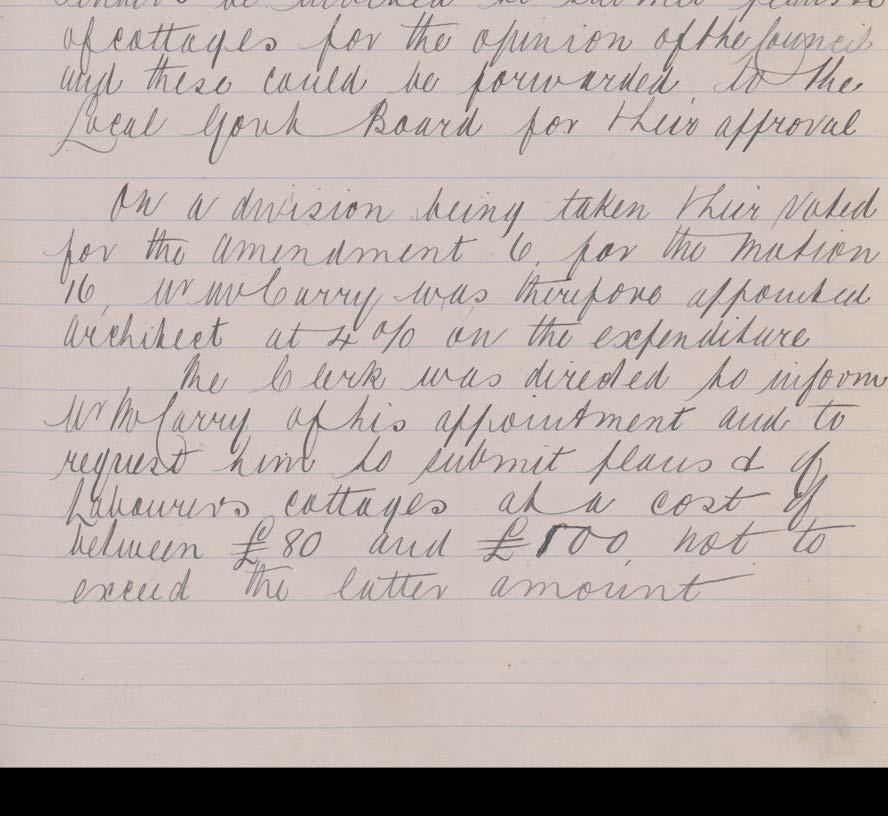 be invited to submit plans &c
of cottages for the opinion of the Council
and these could be forwarded to the
Local Govt Board for their approval
On a division being taken their voted
for the amendment 6, for the motion
16, Mr McCarry was therefore appointed
Architect at 4% on the expenditure
The Clerk was directed to inform
Mr McCarry of his appointment and to
request him to submit plans & of
Labourers cottages at a cost of
between £80 and £100 not to
exceed the latter amount